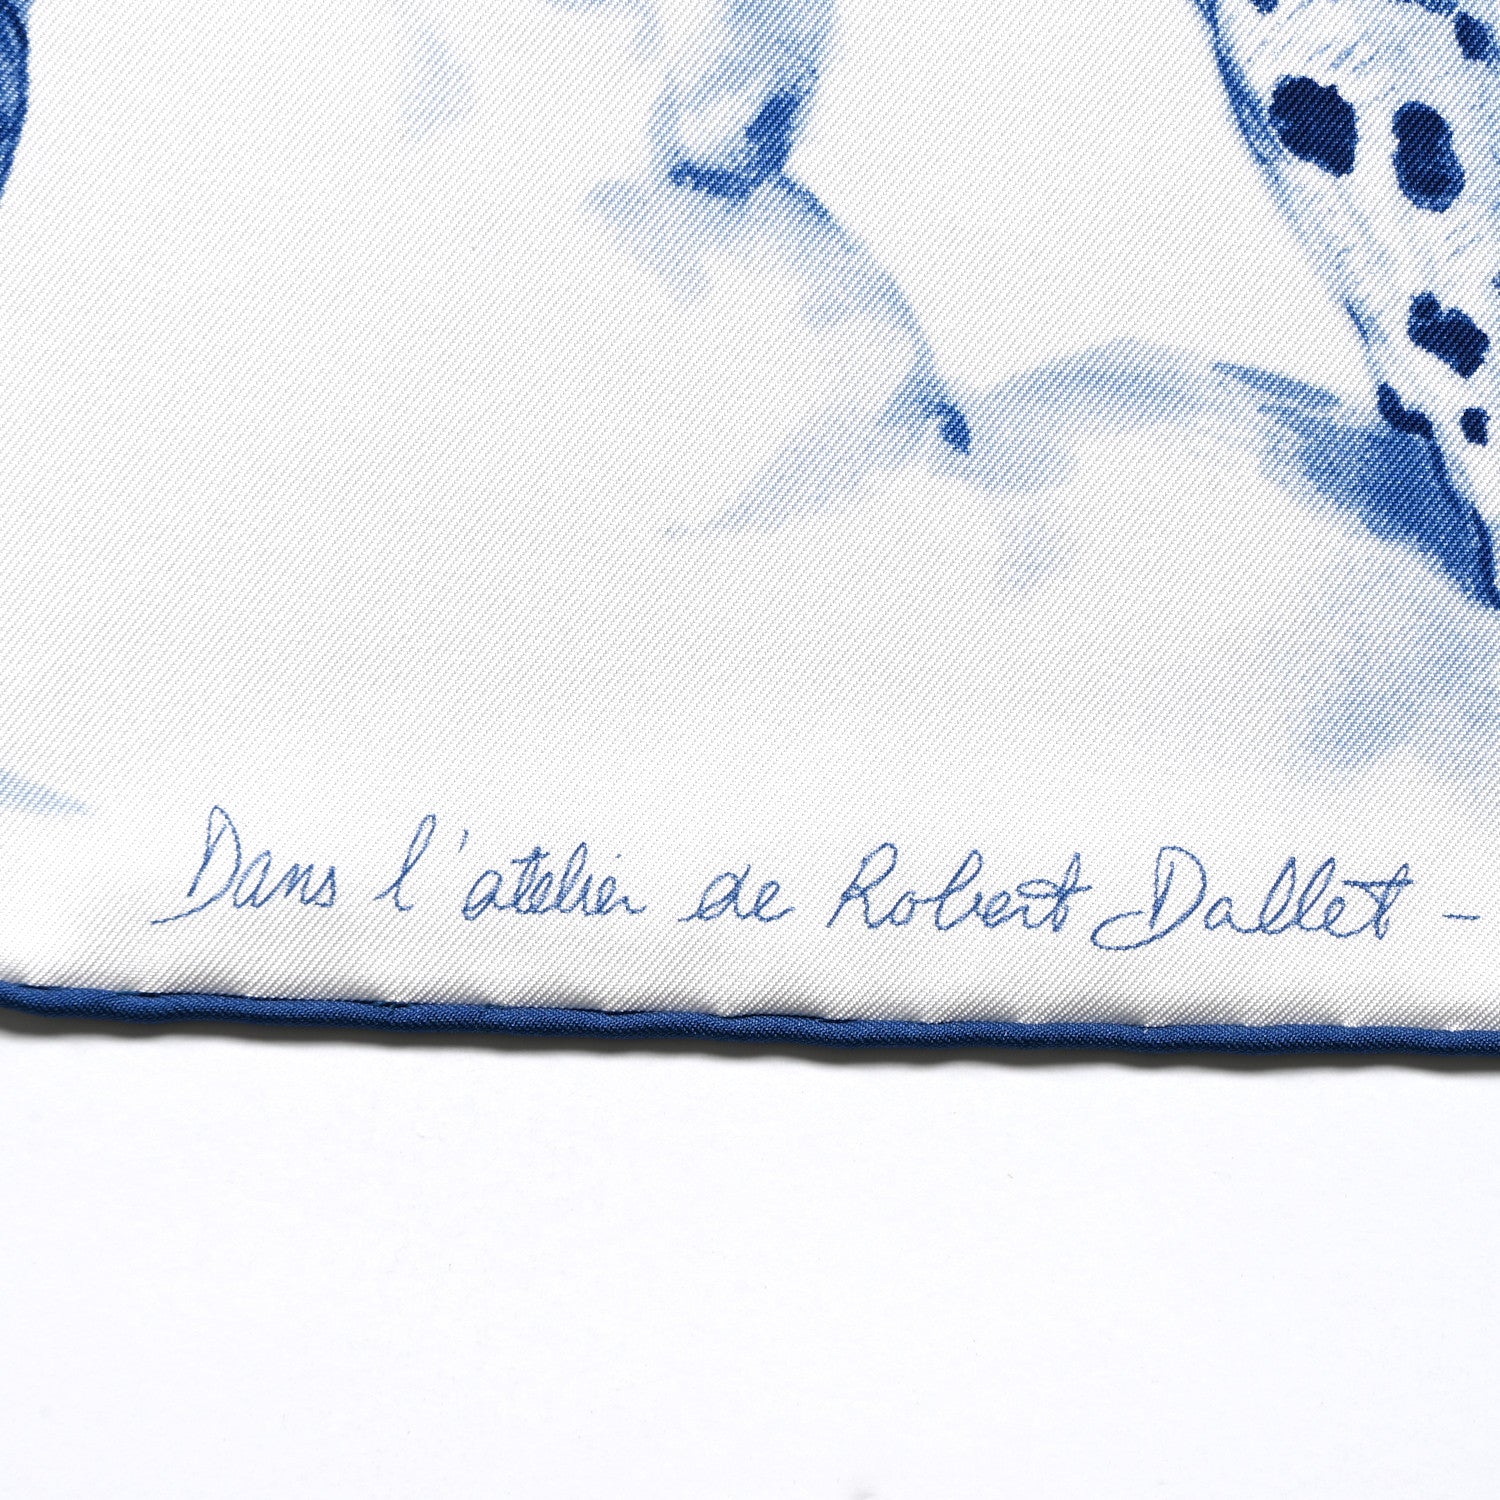 Dans l'atelier de Robert Dallet -